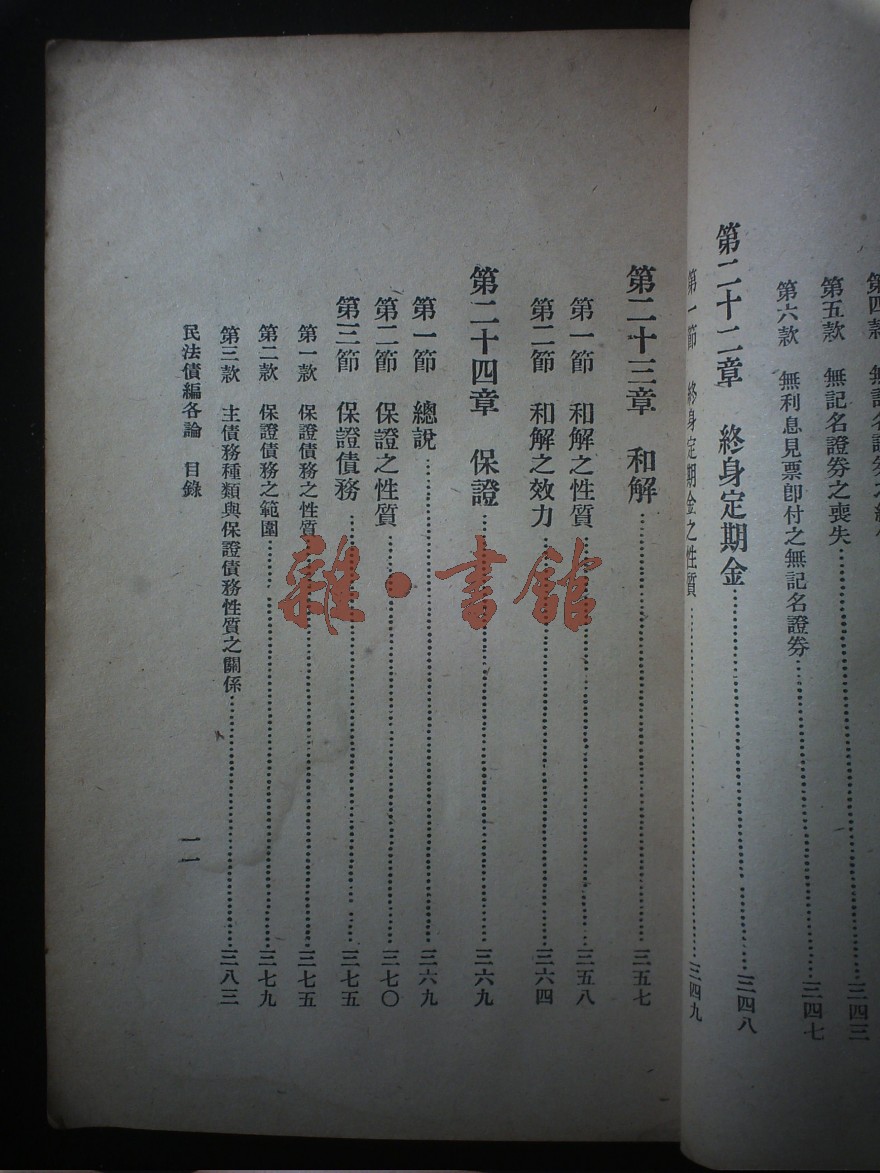 第五款　無記名證券之喪失……三四三
第六款　無利息見票卽付之無記名證券……三四七
第二十二章　終身定期金……三四八
第一節　終身定期金之性質……三四九
第二十三章　和解……三五七
第一節　和解之性質……三五八
第二節　和解之效力……三六四
第二十四章　保證……三六九
第一節　總說……三六九
第二節　保證之性質……三七〇
第三節　保證債務……三七五
第一款　保證債務之性質……三七五
第二款　保證債務之範圍……三七九
第三款　主債務種類與保證債務性質之關係……三八三
民法債編各論　目錄
一一
雜·書館